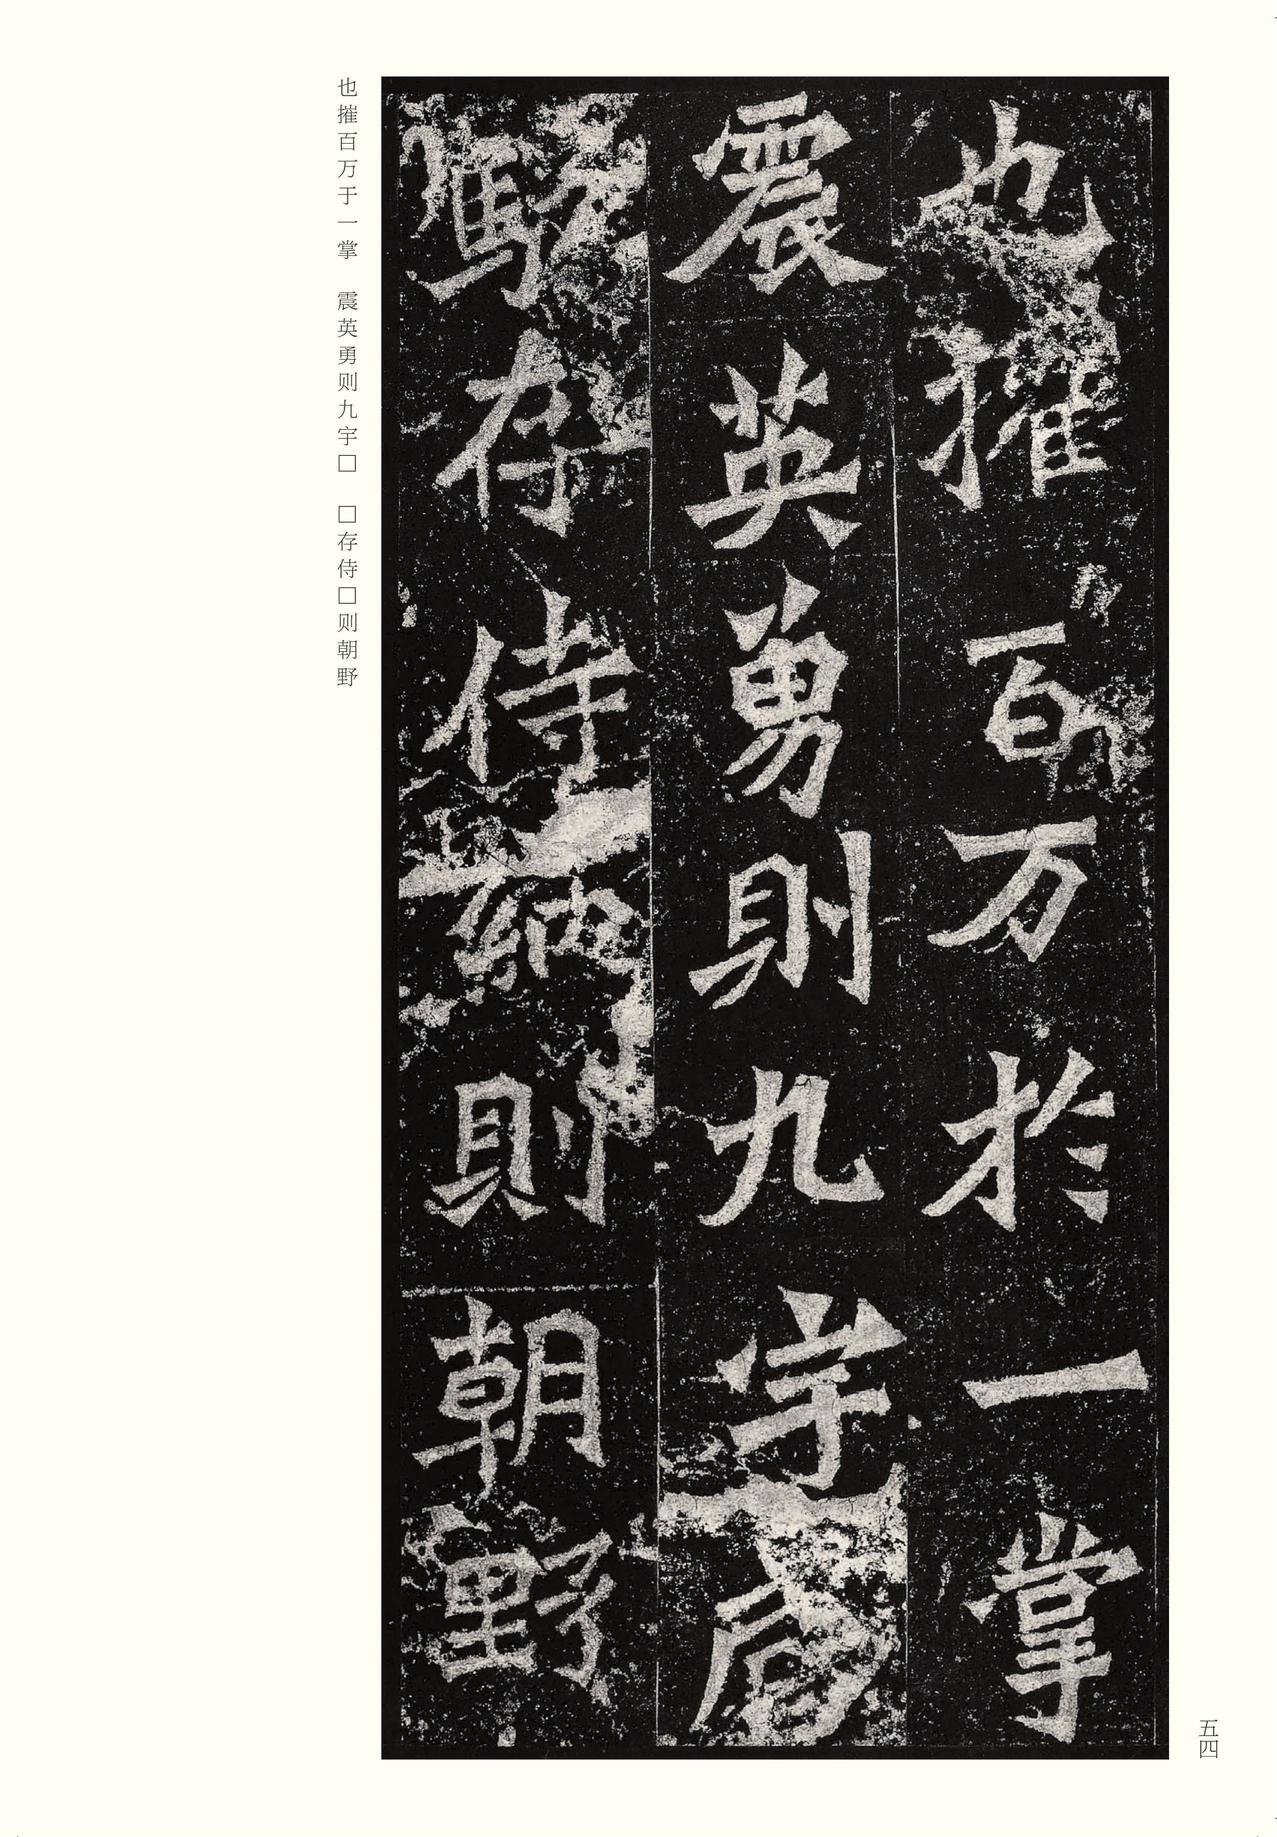 也摧百万於一掌
震英勇則九宇
存侍納則朝野
也摧百万于一掌　震英勇则九宇□　□存侍□则朝野
五四